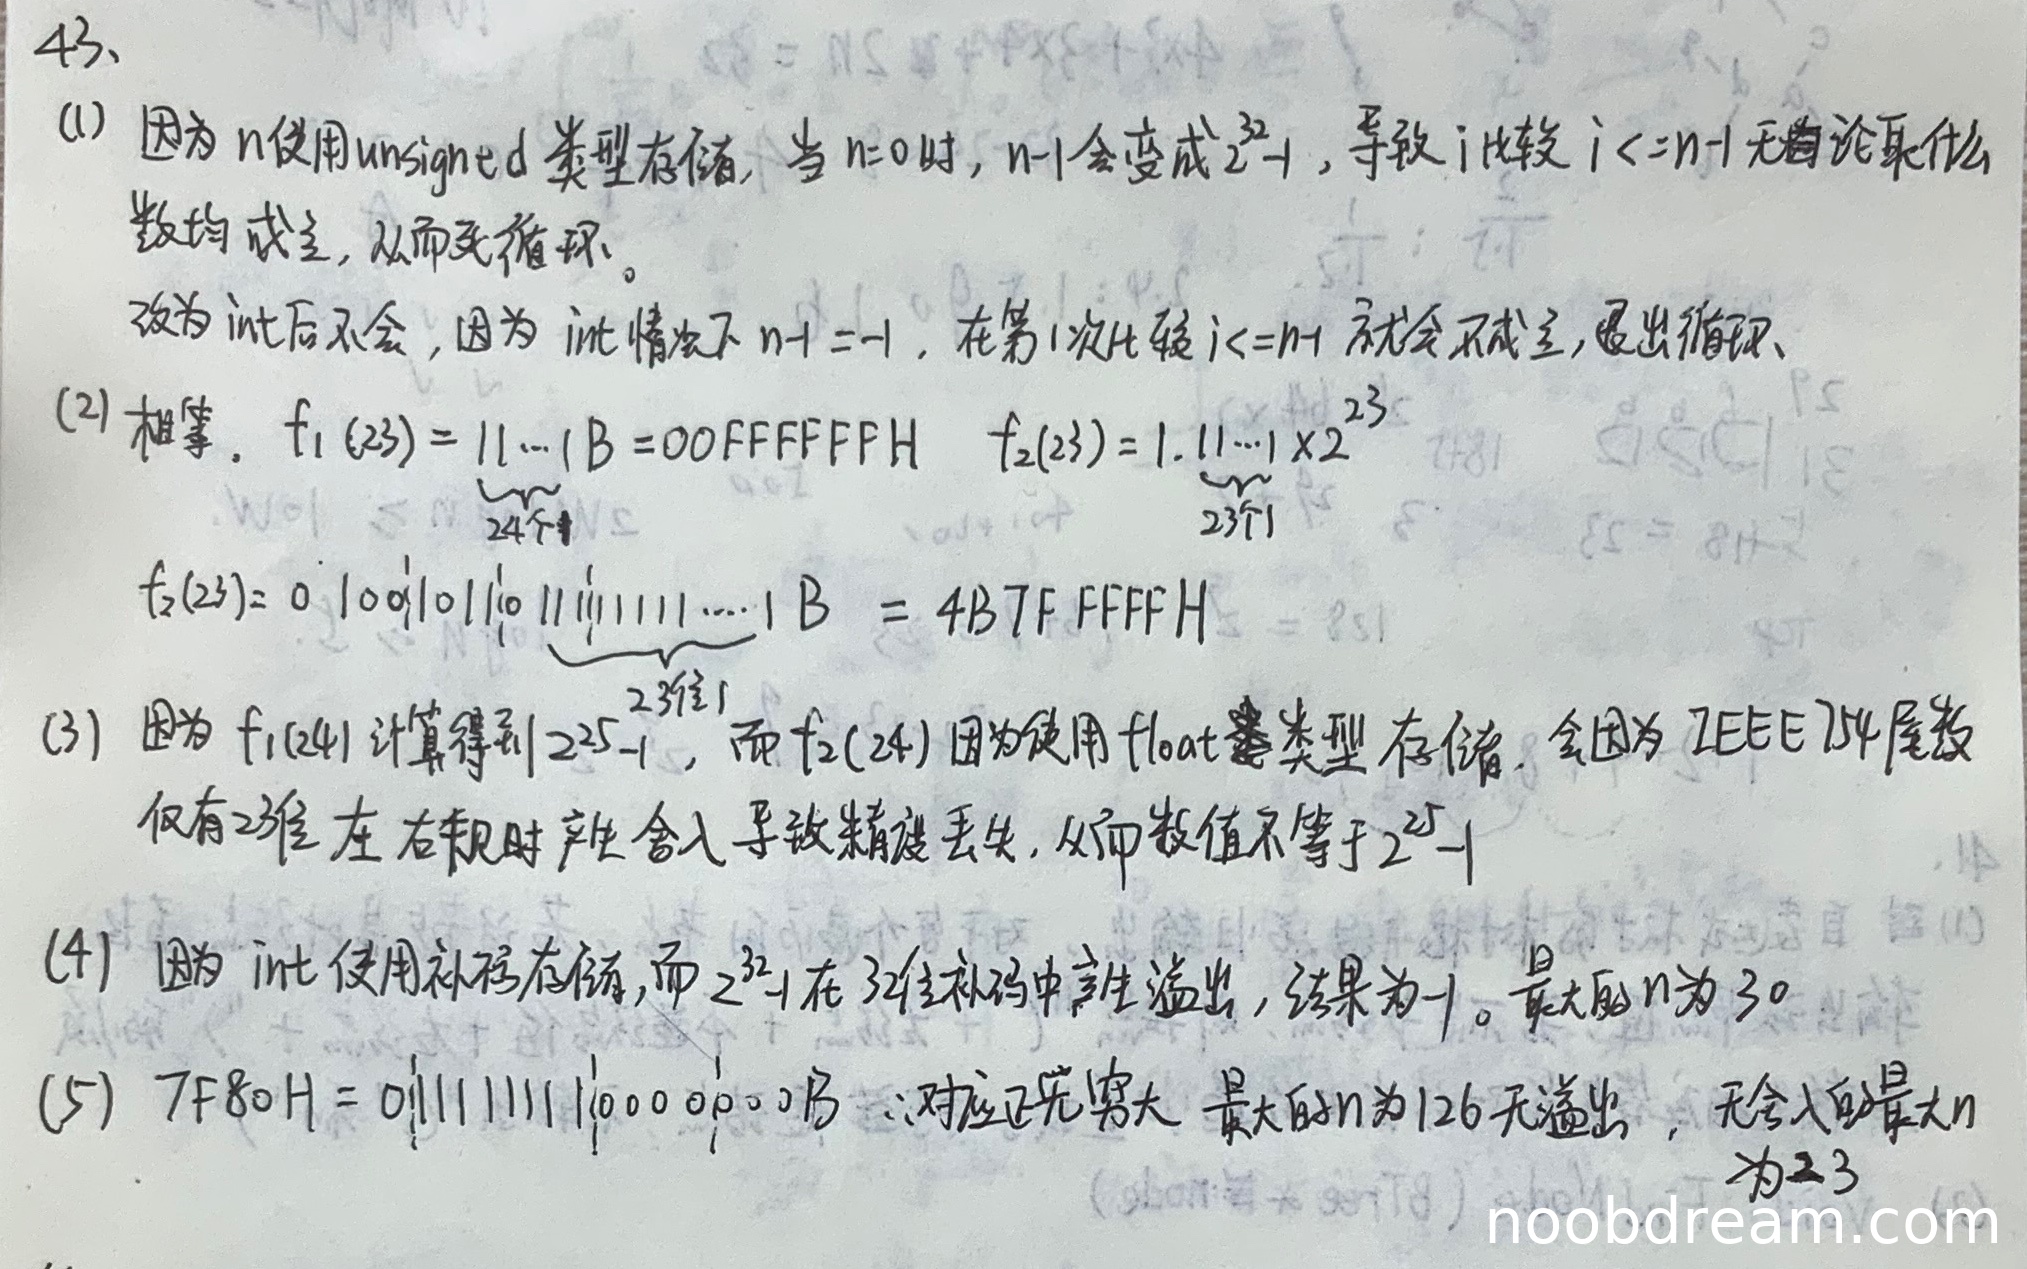 43、
(1) 因为n使用unsigned类型存储,当n=0时,n-1会变成2^32-1,导致i比较i<=n-1无论取什么
数均成立,从而死循环。
改为int后不会,因为int情况下n-1=-1,在第1次比较i<=n-1就会不成立,退出循环、
(2) 相等. f1(23)=11…1B=00FFFFFFH f2(23)=1.11…1×2^23
24个1 23个1
f2(23)=0 100 1011 0 11111111....1B = 4B7F FFFFH
23位1
(3) 因为f1(24)计算得到2^25-1,而f2(24)因为使用float类型存储.会因为IEEE754尾数
仅有23位在右规时产生舍入导致精度丢失,从而数值不等于2^25-1
(4) 因为int使用补码存储,而2^32-1在32位补码中产生溢出,结果为-1。最大的n为30
(5) 7F80H=0111 1111 1000 0000B ∴对应正无穷大 最大的n为126无溢出,无舍入的最大n
为23
noobdream.com